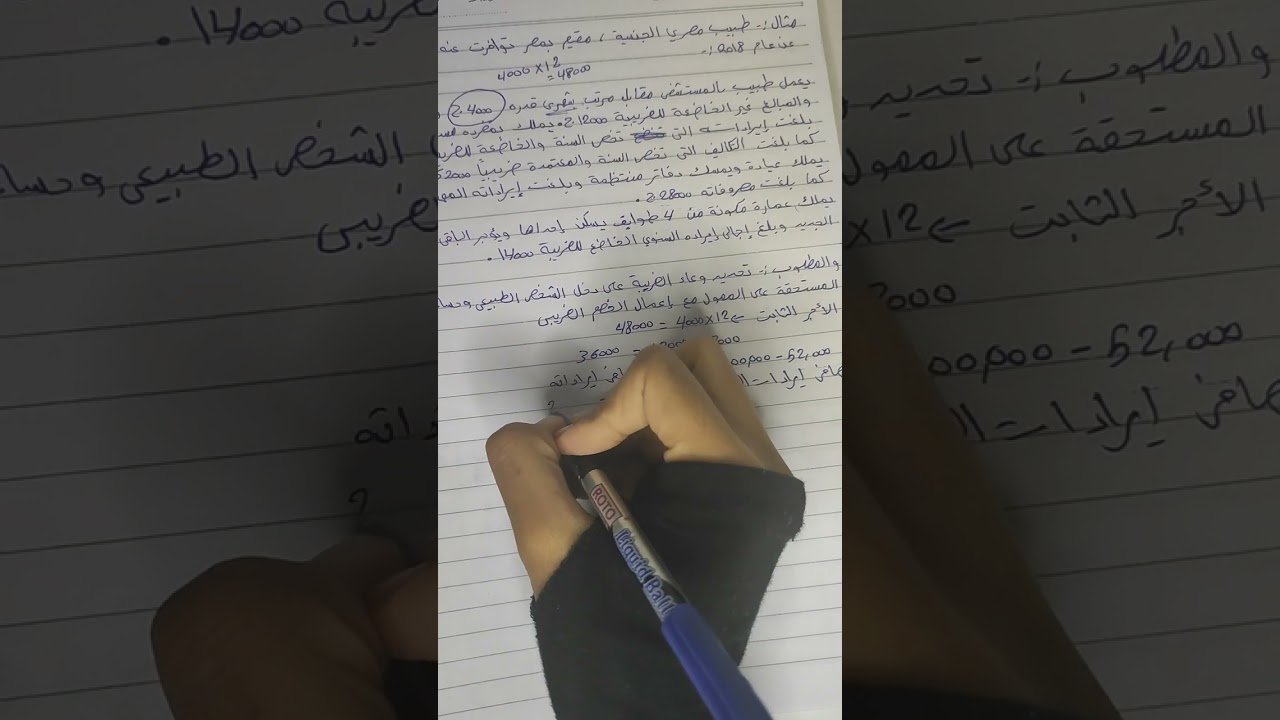 مثال :- طبيب مصري الجنسية ، مقيم بمصر توافرت عنه
عن عام 2018 :-
4000 × 12
= 48000
يعمل طبيب بالمستشفى مقابل مرتب شهري قدره 4000 ج
والمبالغ غير الخاضعة للضريبة 12000 ج. يملك بمفرده
بلغت إيراداته التى تخص السنة والخاضعة
كما بلغت التكاليف التى تخص السنة والمعتمدة ضريبياً
يملك عيادة ويمسك دفاتر منتظمة وبلغت إيراداته
كما بلغت مصروفاته 2800 ج.
يملك عمارة مكونة من 4 طوابق يسكن إحداها ويؤجر الباقى
الجديد وبلغ إجمالى إيراده السنوي الخاضع للضريبة 14000 .
والمطلوب :- تحديد وعاء الضريبة على دخل الشخص الطبيعى وحسا
المستحقة على الممول مع إعمال الخصم الضريبى
الأجر الثابت ← 4000×12 = 48000
36000 =
00,000 - 52,000
صافى إيرادات صافى إيراداته
ROTO Liquid Ball